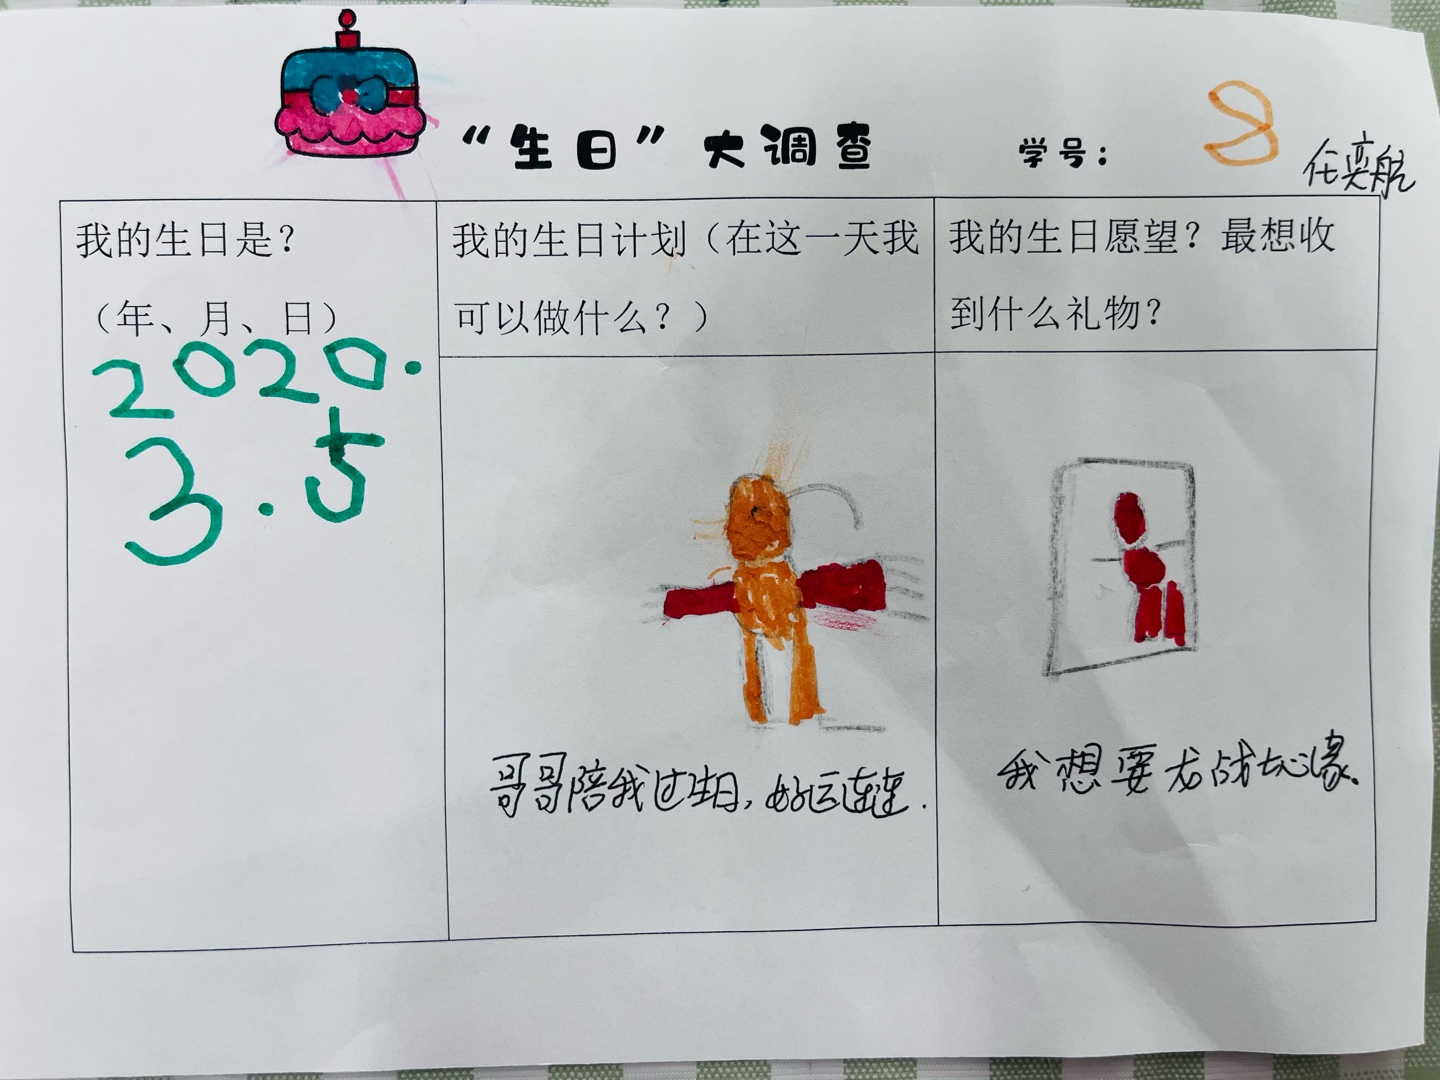 “生日”大调查 学号： 8 任奕航
我的生日是？
（年、月、日）
2020.
3.5
我的生日计划（在这一天我
可以做什么？）
哥哥陪我过生日，好运连连.
我的生日愿望？最想收
到什么礼物？
我想要龙战